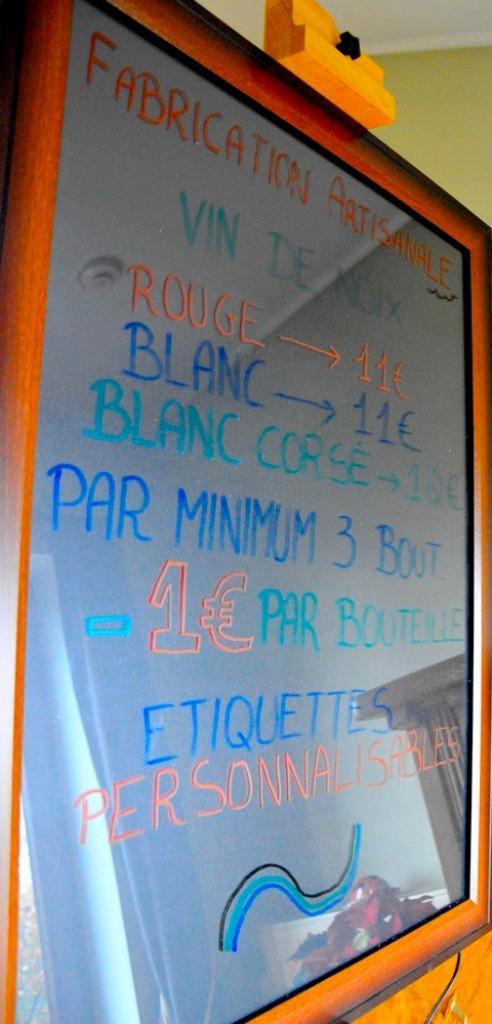 FABRICATION ARTISANALE
VIN DE NOIX
ROUGE → 11€
BLANC → 11€
BLANC CORSÉ → 12€
PAR MINIMUM 3 BOUT.
- 1€ PAR BOUTEILLE
ETIQUETTES
PERSONNALISABLES